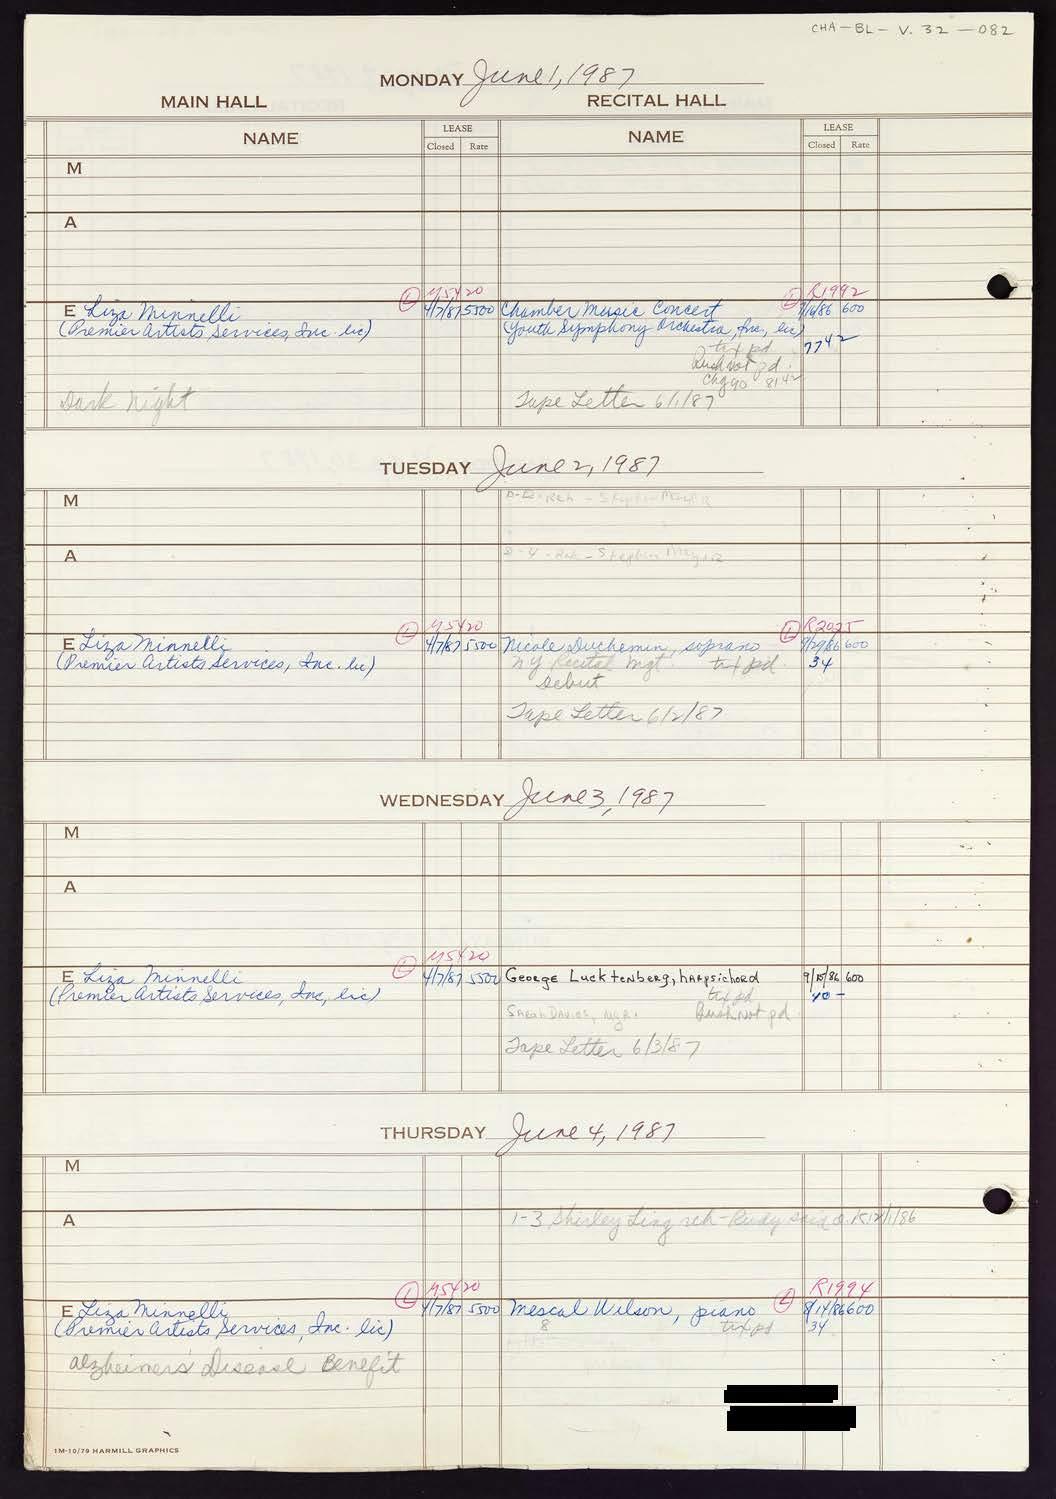 CHA-BL- V. 32 -082
MONDAY June 1, 1987
MAIN HALL
RECITAL HALL
NAME
LEASE
Closed Rate
NAME
LEASE
Closed Rate
M
A
M5420
R1992
E Liza Minnelli
4/7/87 5500
(Premier Artists Services, Inc lic)
Chamber Music Concert
600
(Youth Symphony Orchestra, Inc., lic)
77 42
tix pd
not pd.
Chg 90 81 42
Dark Night
Tape Letter 6/1/87
TUESDAY June 2, 1987
M
Reh - Stephen
A
2-4 - Reh - Stephen
M5420
R2025
E Liza Minnelli
4/7/87 5500
(Premier Artists Services, Inc. lic)
Nicole Duchemin, soprano
9/29/86 600
NY Recital Mgt. tix pd.
34
debut
Tape Letter 6/2/87
WEDNESDAY June 3, 1987
M
A
M5420
E Liza Minnelli
4/7/87 5500
(Premier Artists Services, Inc, lic)
George Lucktenberg, harpsichord
9/15/86 600
tix pd
40 -
Sarah Davies, Mgr.
not pd.
Tape Letter 6/3/87
THURSDAY June 4, 1987
M
A
1-3 Shirley Ling reh - Rudy said O.K 12/1/86
M5420
R1994
E Liza Minnelli
4/7/87 5500
(Premier Artists Services, Inc. lic)
Mescal Wilson, piano
8/14/86 600
8
tix pd
34
Alzheimers' Disease Benefit
1M-10/79 HARMILL GRAPHICS